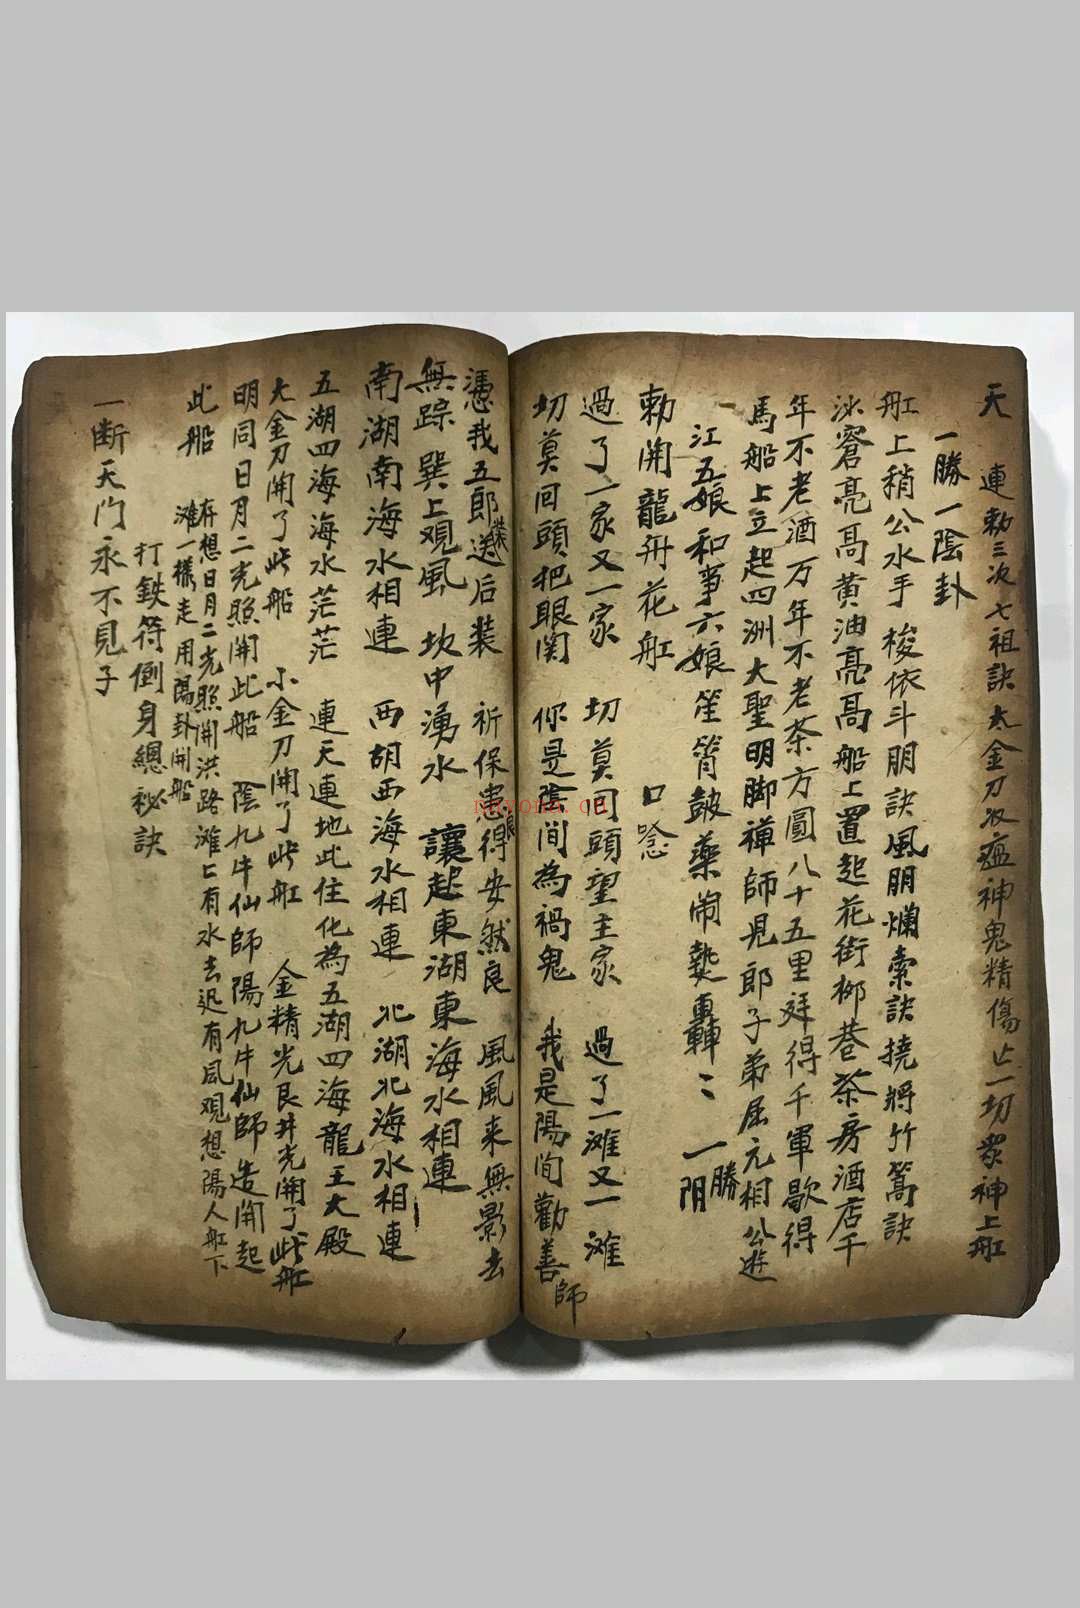 天　連勅三次七祖訣大金刀収瘟神鬼精傷亡一切衆神上舡
一勝一陰卦
舡上稍公水手梭依斗朋訣風朋爛索訣撓將竹篙訣
氷窗亮高黄油亮高船上置起花街柳巷茶房酒店千
年不老酒万年不老茶方圓八十五里廷得千軍歇得
馬船上立起四洲大聖明脚禅師兄郎子弟屈元相公遊
江五娘和事六娘笙簫皷藥鬧熱轟轟〻一勝一阴
勅開龍舟花舡　口唸
過了一家又一家　切莫回頭望主家　過了一滩又一滩
切莫回頭把眼関　你是陰间為禍鬼　我是陽间勸善師
憑我五郎送后装　祈保患得安然良　風風来無影去
無踪　巽上观風　坎中湧水　讓起東湖東海水相連
南湖南海水相連　西胡西海水相連　北湖北海水相連
五湖四海海水茫茫　連天連地此住化為五湖四海龍王大殿
大金刀開了此船　小金刀開了此舡　金精光良井光開了此舡
明同日月二光照開此船　陰九牛仙師陽九牛仙師造開起
此船　存想日月二光照開洪路滩上有水去迟有風观想陽人舡下
滩一樣走用陽卦開船
打鉄符倒身總秘訣
一断天门永不見子
nayona.cn